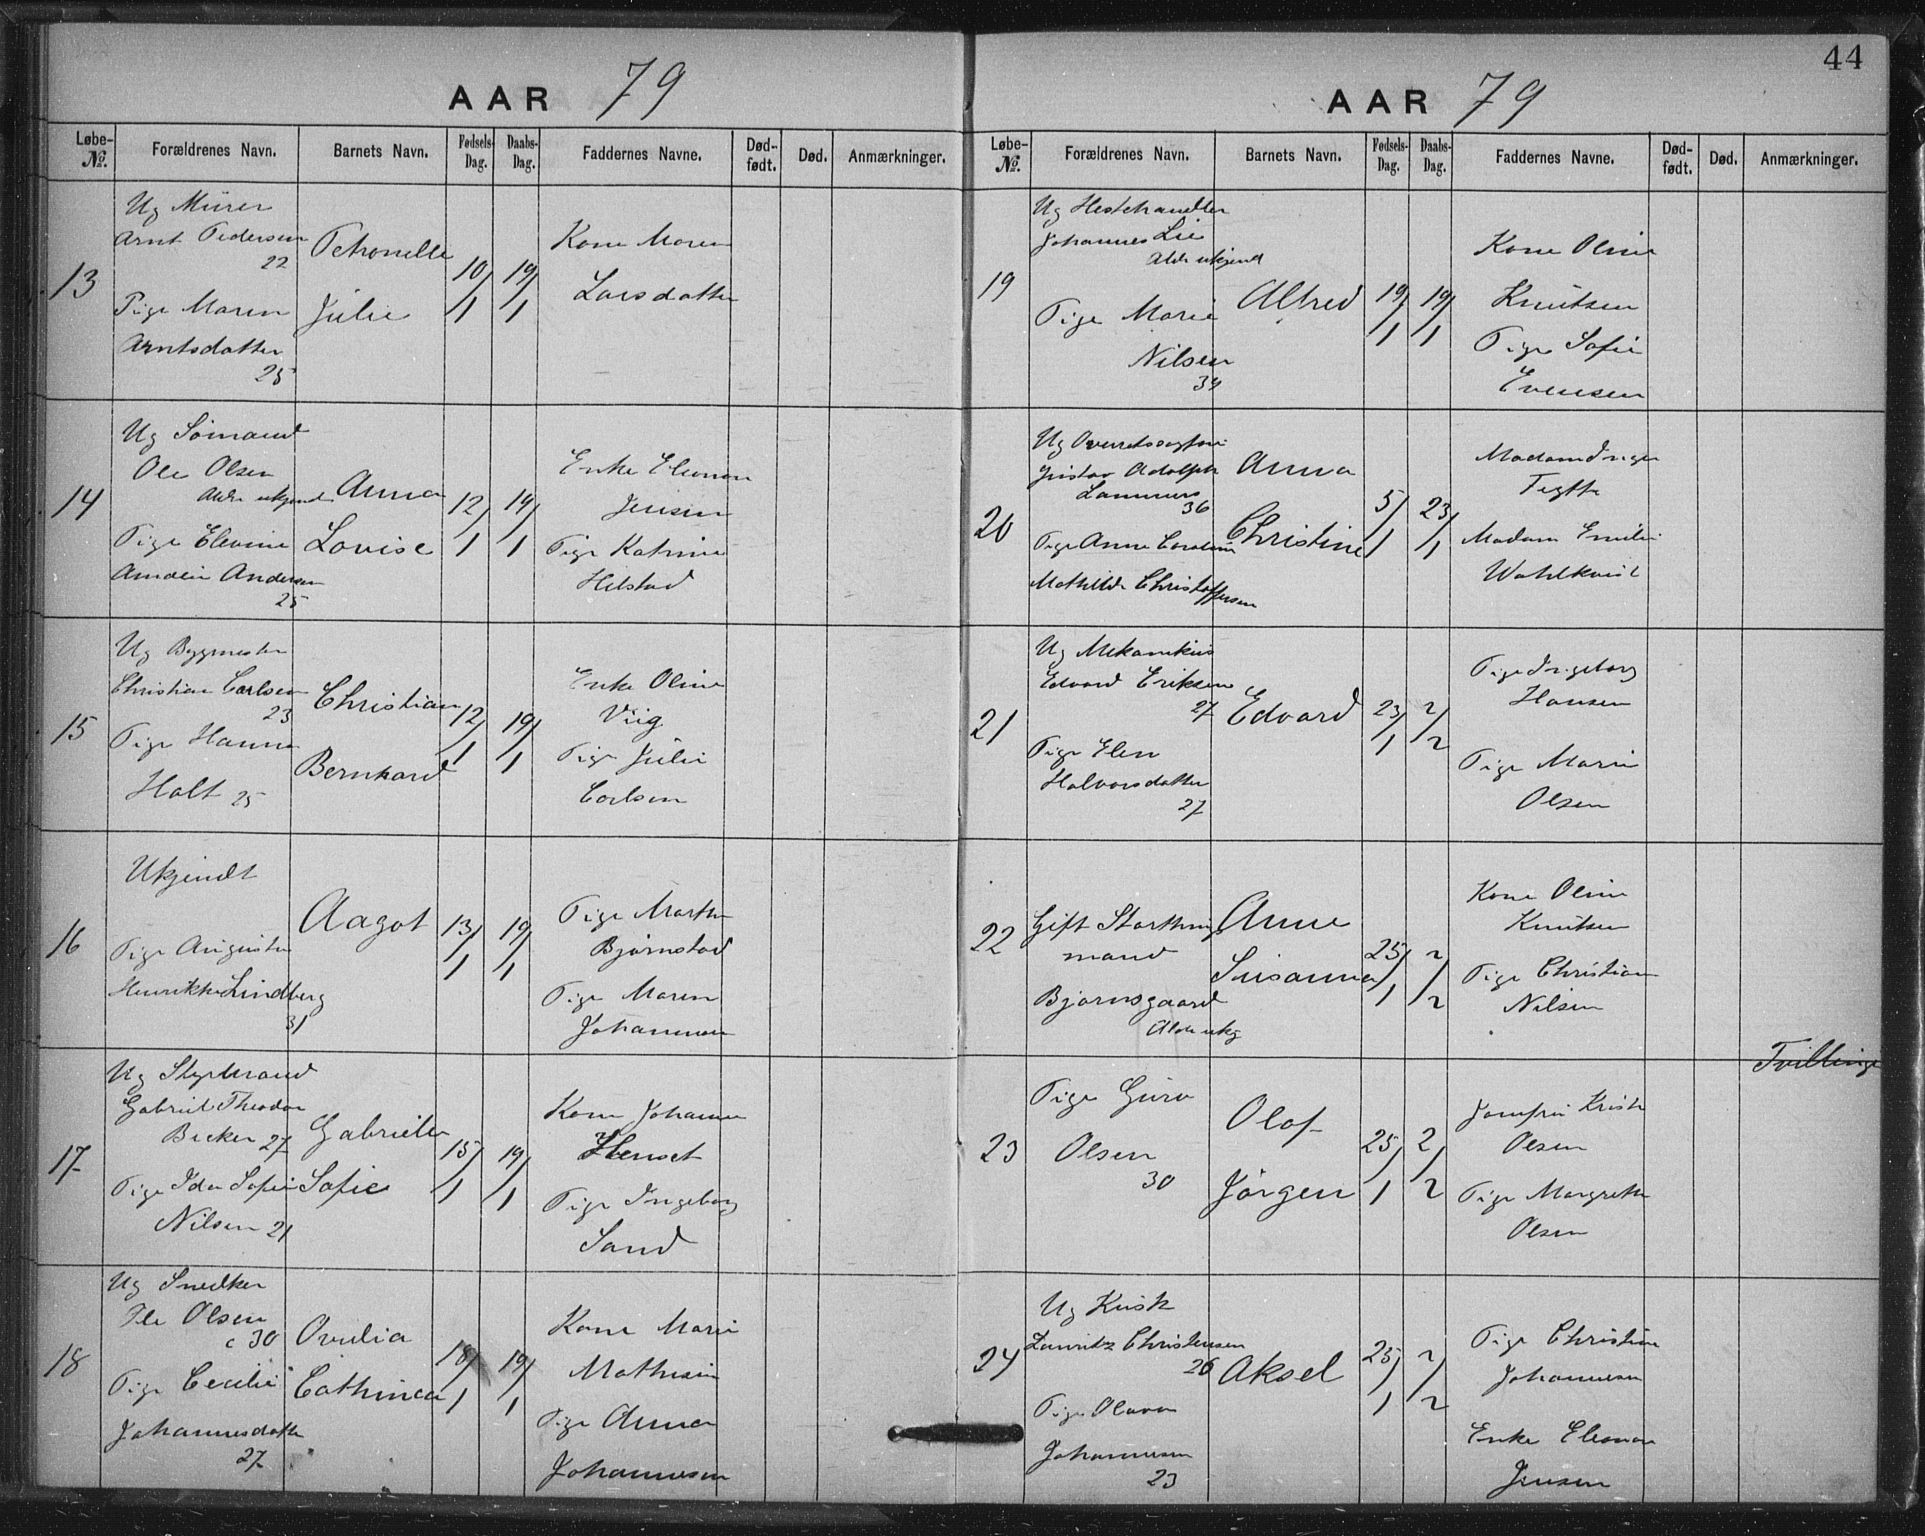 44
AAR 79
Løbe-№.
Forældrenes Navn.
Barnets Navn.
Fødsels-Dag.
Daabs-Dag.
Faddernes Navne.
Død-født.
Død.
Anmærkninger.
13
Ug Mürer
Arnt Pedersen
22
Pige Maren
Arntsdatter
25
Petronelle
Julie
10/1
19/1
Kone Maren
Larsdatter
14
Ug Sömand
Ole Olsen
Alder ukjend
Pige Elevine
Amalie Andersen
25
Anna
Lovise
12/1
19/1
Enke Eleonora
Jensen
Pige Katrine
Helstad
15
Ug Bygmester
Christian Carlsen
23
Pige Hanna
Holt 25
Christian
Bernhard
12/1
19/1
Enke Oline
Viig
Pige Julie
Carlsen
16
Ukjendt
Pige Augusta
Henrikke Lindberg
31
Aagot
13/1
19/1
Pige Marthe
Bjørnstad
Pige Maren
Johannesen
17
Ug Styrmand
Gabriel Theodor
Becker 27
Pige Ida Sofie
Nilsen 21
Gabriele
Sofie
15/1
19/1
Kone Johanne
Henset
Pige Ingeborg
Sand
18
Ug Snedker
Ole Olsen
c 30
Pige Cecilie
Johannesdatter
27
Ovidia
Cathinca
18/1
19/1
Kone Marie
Mathisen
Pige Anna
Johannesen
AAR 79
Løbe-№.
Forældrenes Navn.
Barnets Navn.
Fødsels-Dag.
Daabs-Dag.
Faddernes Navne.
Død-født.
Død.
Anmærkninger.
19
Ug Hestehandler
Johannes Lie
Alder ukjend
Pige Marie
Nilsen
34
Alfred
19/1
19/1
Kone Oline
Knutsen
Pige Sofie
Evensen
20
Ug Overretssagfører
Gustav Adolph
Lammers
36
Pige Anne Caroline
Mathilde Christoffersen
Anna
Christine
5/1
23/1
Madam Inger
Madam Emilie
Wahlkvist
21
Ug Mekanikus
Edvard Eriksen
27
Pige Elen
Halvorsdatter
27
Edvard
23/1
2/2
Pige Ingeborg
Hansen
Pige Marie
Olsen
22
Gift Storthings
mand
Bjørnsgaard
Alder ukj
Anne
Susanna
25/1
2/2
Kone Oline
Knutsen
Pige Christian
Nilsen
Tvillinge
23
Pige Guro
Olsen
30
Olaf
Jörgen
25/1
2/2
Jomfru Kristi
Olsen
Pige Margrethe
Olsen
24
Ug Kusk
Lauritz Christensen
26
Pige Olava
Johannesen
23
Aksel
25/1
2/2
Pige Christine
Johannesen
Enke Eleonora
Jensen